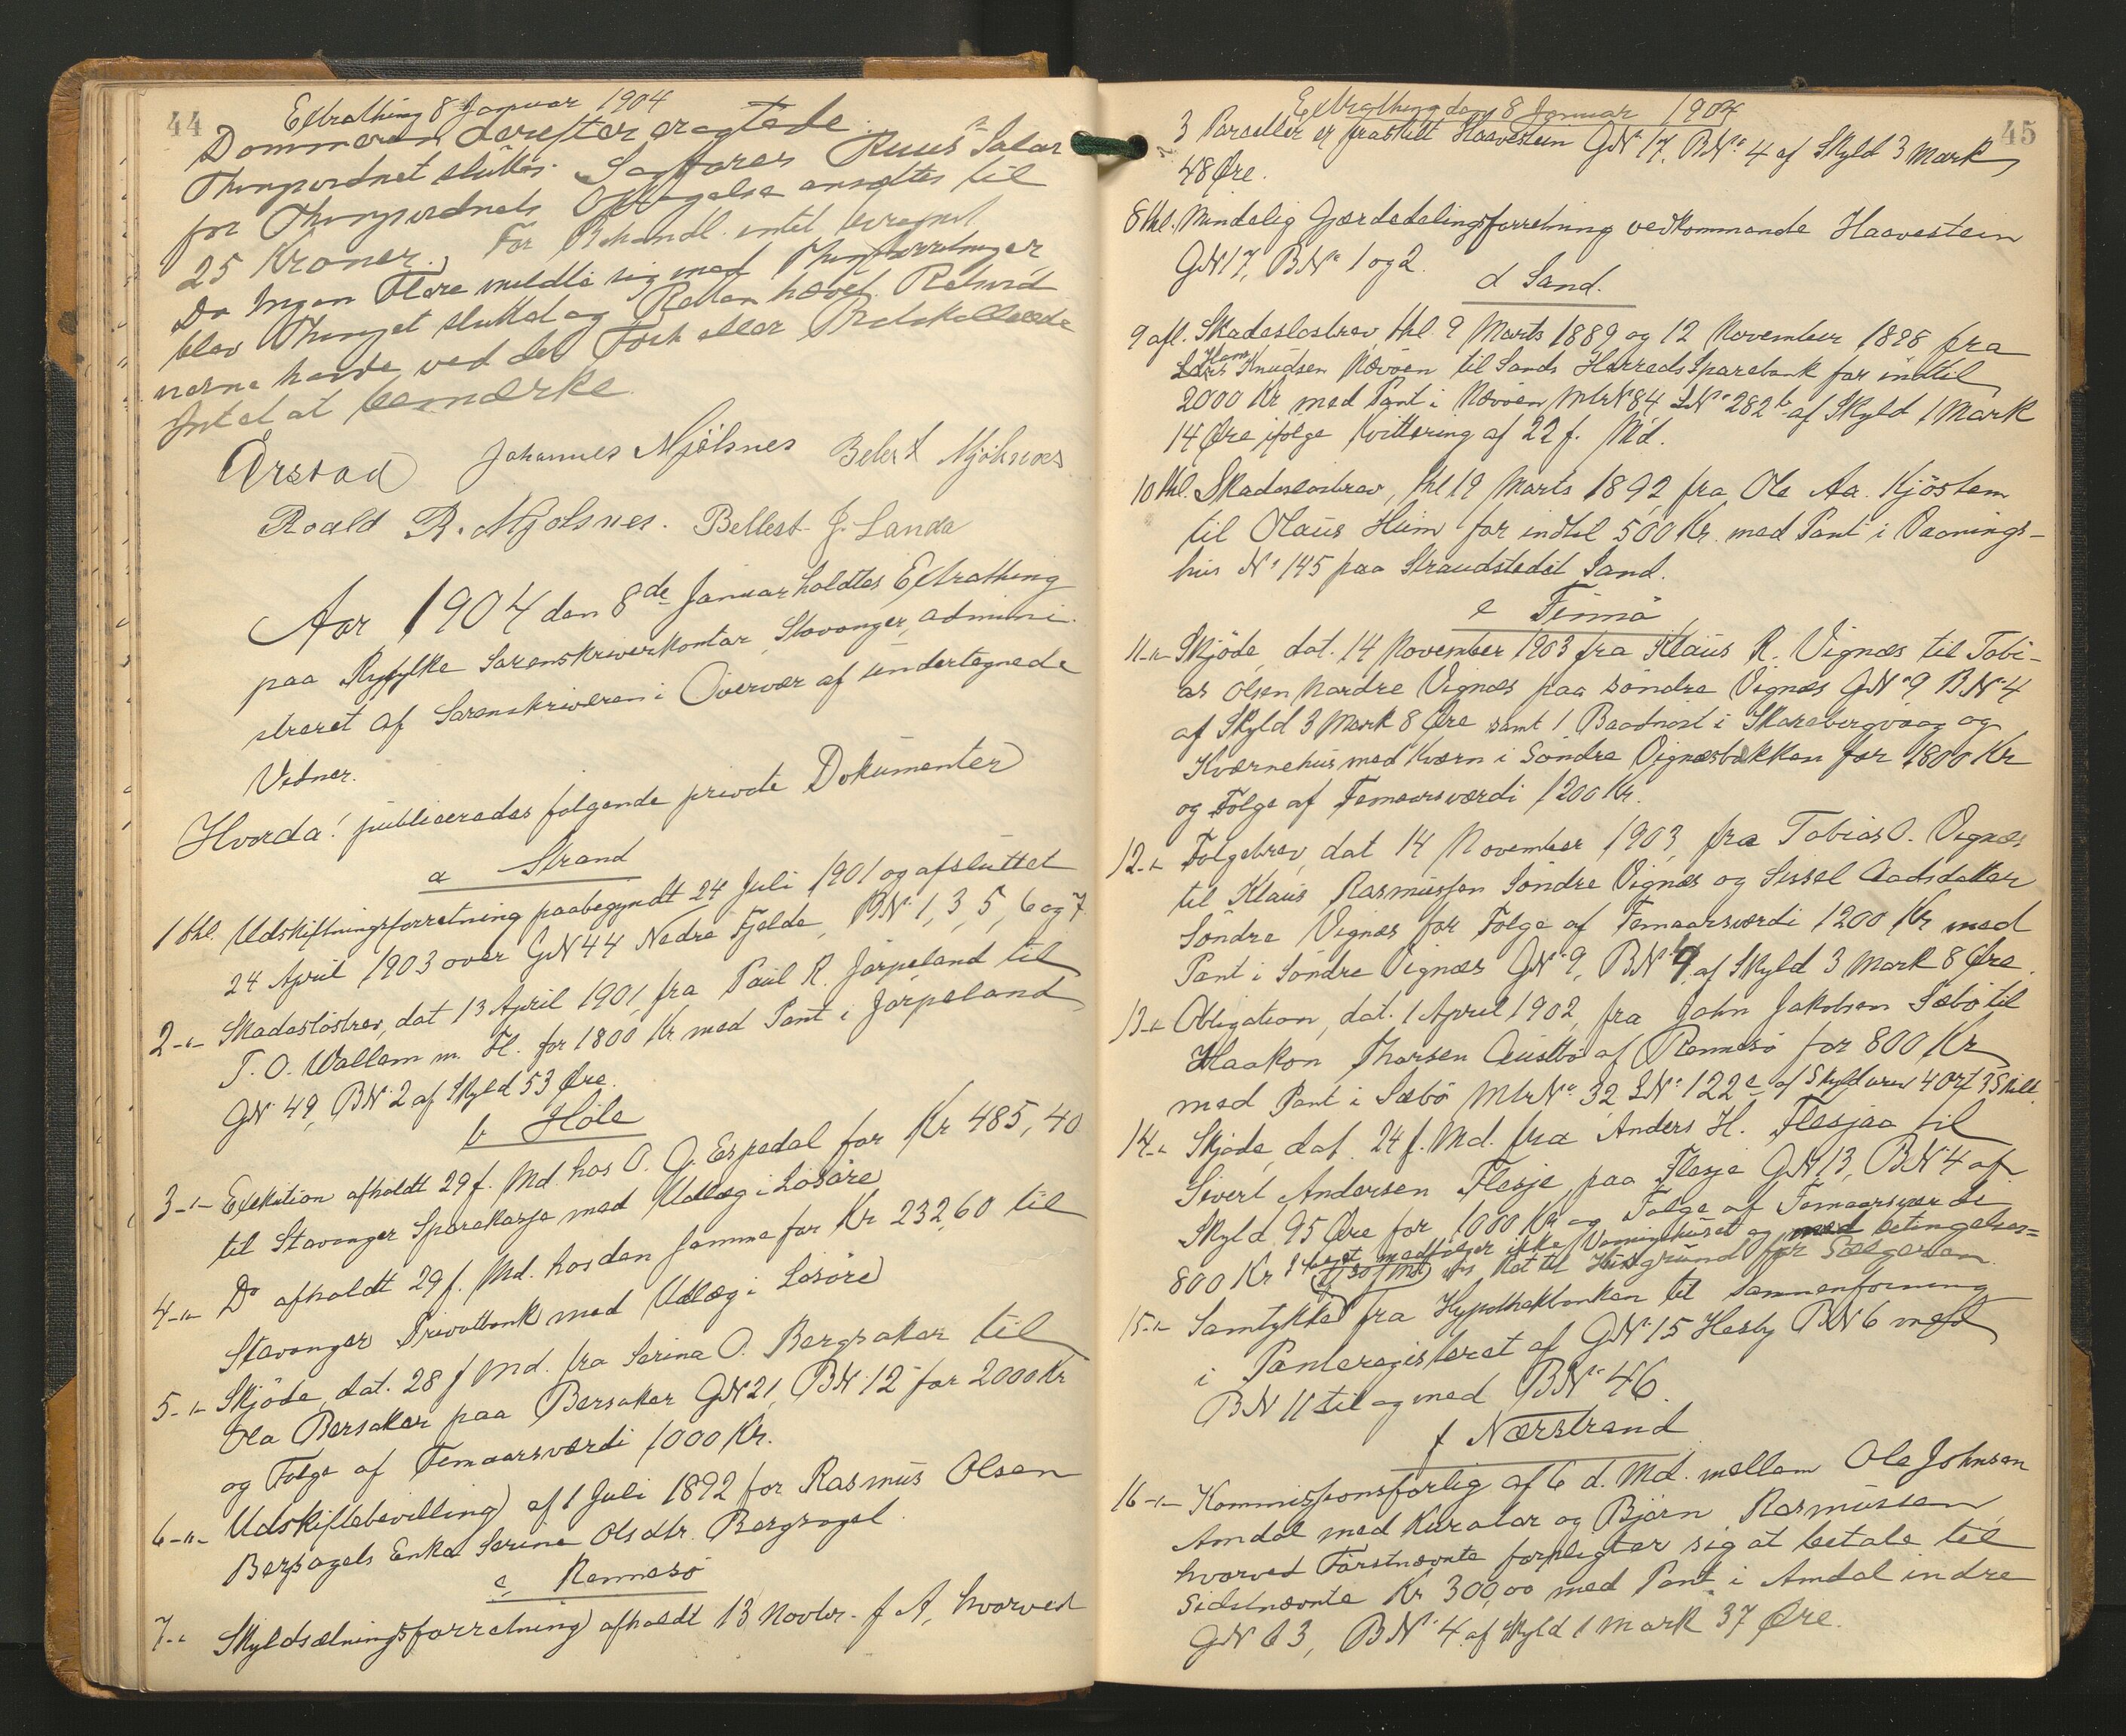 44
Extrathing 8 Januar 1904
Dommeren derefter eragtede.
Thingsvidnet sluttes. Sagfører Ruus's Salær
for Thingsvidnets Optagelse ansattes til
25 Kroner. For Behandl. intet beregnet
Da Ingen Flere meldte sig med Thingforretninger
blev Thinget sluttet og Retten hævet.
nerne havde ved det
Intet at bemærke.
Årstad Johannes Mjölsnes Belest Mjölsnes
Roald R. Mjølsnes. Bellest J. Landa
Aar 1904 den 8de Januar holdtes Extrathing
paa Ryfylke Sorenskriverkontor, Stavanger, admini-
streret af Sorenskriveren i Overvær af undertegnede
Vidner.
Hvorda! publiceredes følgende private Dokumenter
a Strand
1 thl. Udskiftningsforretning paabegyndt 24 Juli 1901 og afsluttet
24 April 1903 over GN 44 Nedre Fjelde, BN. 1, 3, 5, 6 og 7
2-"- Skadesløsbrev, dat 13 April 1901, fra Paul R. Jørpeland til
T. O. Wallem m. Fl. for 1800 Kr med Pant i Jørpeland
GN. 49, BN. 2 af Skyld 53 Øre.
b Høle
3-"- Exekution afholdt 29 f. Md. hos O. G. Espedal for Kr 485,40
til Stavanger Sparekasse med Udlæg i Løsøre
4-"- Do afholdt 29 f. Md. hos den samme for Kr 232,60 til
Stavanger Privatbank med Udlæg i Løsøre
5-"- Skjöde, dat. 28 f Md. fra Serina O. Bergsaker til
Ola Bersaker paa Bersaker GN 21, BN. 12 for 2000 Kr
og Følge af Femaarsværdi 1000 Kr.
6-"- Udskiftebevilling af 1 Juli 1892 for Rasmus Olsen
Bersagels Enke Serine Olsdtr. Bergsagel.
c. Rennesö
7-" Skyldsætningsforretning afholdt 13 Novbr. f A, hvorved
45
Extrathing den 8 Januar 1904
3 Parseller er fraskilt Haavestein GN. 17, BN. 4 af Skyld 3 Mark
48 Øre.
8 thl. Mindelig Gjærdedelingsforretning vedkommende Haavestein
GN 17, BN. 1 og 2.
d Sand.
9 afl. Skadesløsbrev, thl. 9 Marts 1889 og 12 November 1898 fra
Knudsen Nævøen til Sands Herreds Sparebank for indtil
2000 Kr med Pant i Nævøen MtrN 84 LN. 282b af Skyld 1 Mark
14 Øre ifølge Kvittering af 22 f. Md.
10 thl. Skadesløsbrev, thl 19 Marts 1892, fra Ole Aa. Kjöstem
til Olaus Hüm for indtil 500 Kr. med Pant i Vaanings-
hus N. 145 paa Strandstedet Sand.
e Finnö
11-"- Skjöde, dat. 14 November 1903 fra Klaus R. Vignæs til Tobi-
as Olsen Nordre Vignæs paa Söndre Vignæs GN. 9 BN. 4
af Skyld 3 Mark 8 Øre samt 1 Baadnøst i Skarebergvaag og
Kværnehus med Kværn i Söndre Vignæsbækken for 1800 Kr
og Følge af Femaarsværdi 1200 Kr.
12-"- Følgebrev, dat 14 November 1903, fra Tobias O. Vignæs
til Klaus Rasmussen Söndre Vignæs og Sissel Aadsdatter
Söndre Vignæs for Følge af Femaarsværdi 1200 Kr med
Pant i Söndre Vignæs GN. 9, BN. 4, af Skyld 3 Mark 8 Øre.
13-"- Obligation, dat. 1 April 1902, fra John Jakobsen Sæbö til
Haakon Thorsen Austbö af Rennesö for 800 Kr
med Pant i Sæbö MtrN. 32 LN. 122c af Skyld urev 4 Ort 3 Skill.
14-"- Skjøde, dat. 24 f. Md. fra Anders H. Flesjaa til
Sivert Andersen Flesje, paa Flesje GN. 13, BN 4 af
Skyld 95 Øre for 1000 Kr og Følge af Femaarsværdi
800 Kr medfølger ikke Vaaningshuset og med betingelses=
Ret til Husgrund for Sælgeren.
15-"- Samtykke fra Hypothekbanken til Sammenføining
i Panteregisteret af GN. 15 Hesby BN 6 med
BN 11 til og med BN. 46.
f Nærstrand
16-"- Kommissionsforlig af 6 d. Md. mellem Ole Johnsen
Amdal med Kurator og Bjørn Rasmussen
hvorved Førstnævnte forpligter sig at betale til
Sidstnævnte Kr 300,00 med Pant i Amdal indre
GN 63, BN. 4 af Skyld 1 Mark 37 Øre.